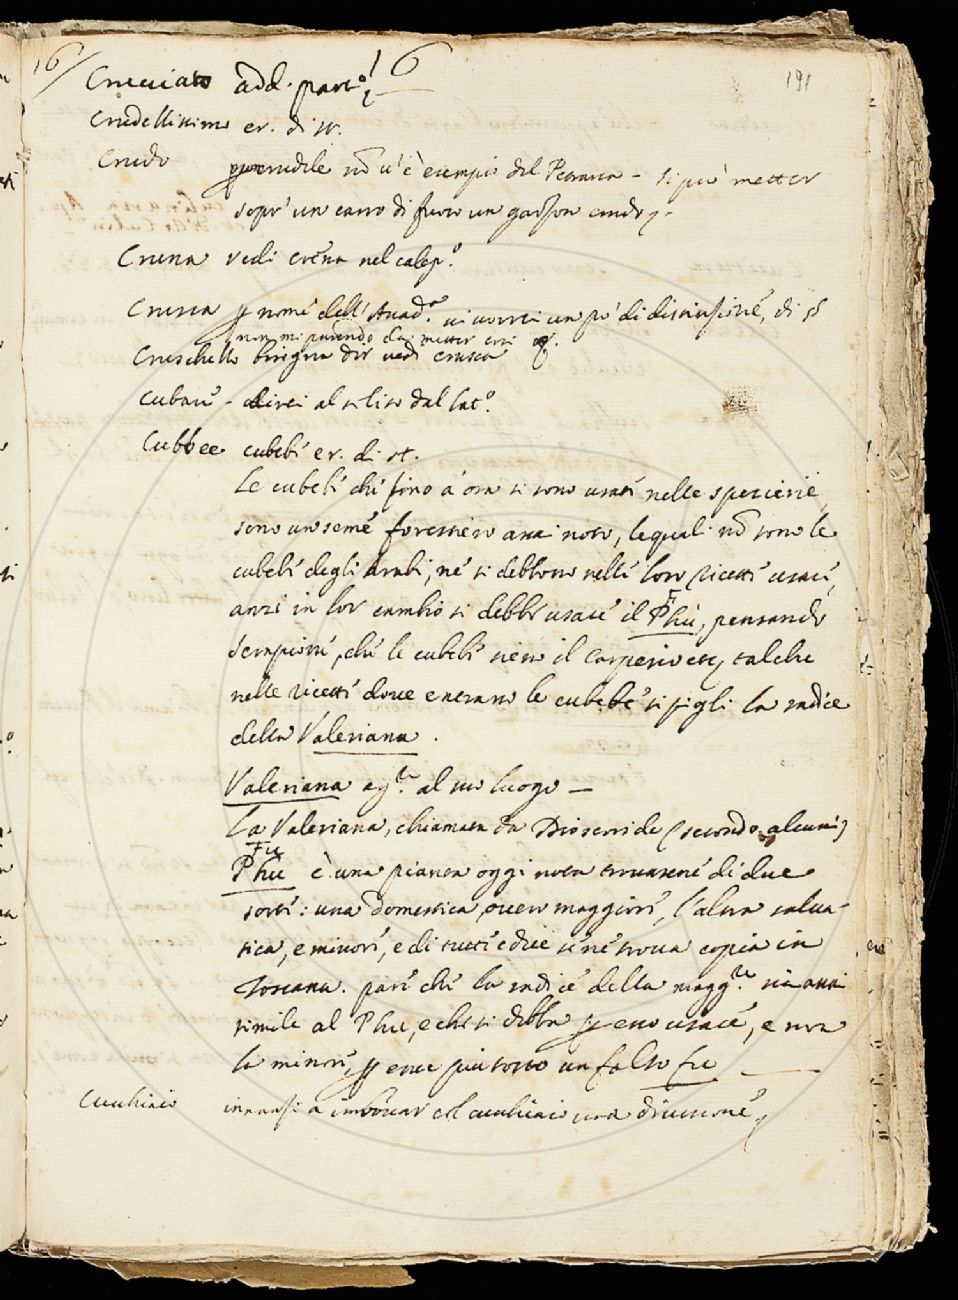 16/ 16 191
Crucciato add. part.º
Crudellissimo er. di st.
Crudo p crudele nõ v'è esempio del Petrarca - si può metter
sopr' un carro di fuoco un garzon crudo.
Cruna vedi crena nel calep.º
Crusca p nome dell' Accad.ª vi vorrei un pò di distinzione, di
non mi parendo da metter così
Cruschello bisogna dir vedi crusca
Cubare - direi al solito dal lat.º
Cubbee cubebe er. di st.
Le cubebe che fino à ora si sono usate nelle spezierie
sono un seme forestiero assai noto, le quali nõ sono le
cubebe degli Arabi, né si debbono nelle loro ricette usare,
anzi in lor cambio si debbe usare il Phù, pensando
Serapione, che le cubebe sieno il talche
nelle ricette dove entrano le cubebe si pigli la radice
della Valeriana.
Valeriana al suo luogo —
La Valeriana, chiamata da Dioscoride (secondo alcuni)
Fu
Phu è una pianta oggi nota trovasene di due
sorti: una domestica, overo maggiore, l'altra salva-
tica, e minore, e di tutte e due se ne trova copia in
Toscana. pare che la radice della magg.re sia assai
simile al Phu, e che si debba p esso usare, e non
la minore, p esser più tosto un falso fu
Cucchiaio innanzi a imboccar col cucchiaio una divisione